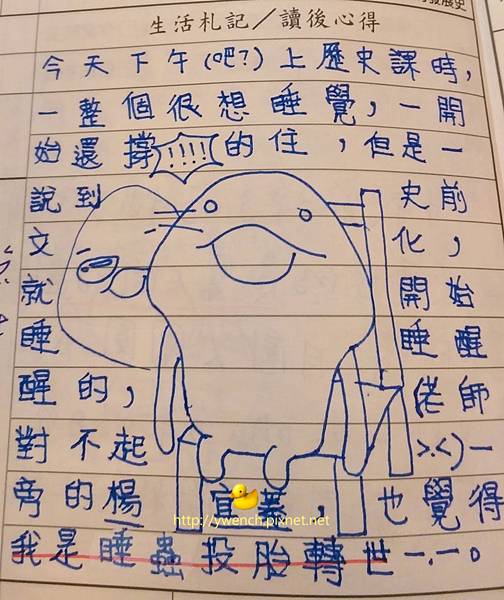 發展史
生活札記／讀後心得
今天下午(吧?)上歷史課時,
一整個很想睡覺,一開
始還撐!!!!的住,但是一
說到史前
文化,
就開始
睡睡醒
醒的,(老師
對不起>.<)一
旁的楊宜,也覺得
http://ywench.pixnet.net
我是睡蟲投胎轉世一.一。